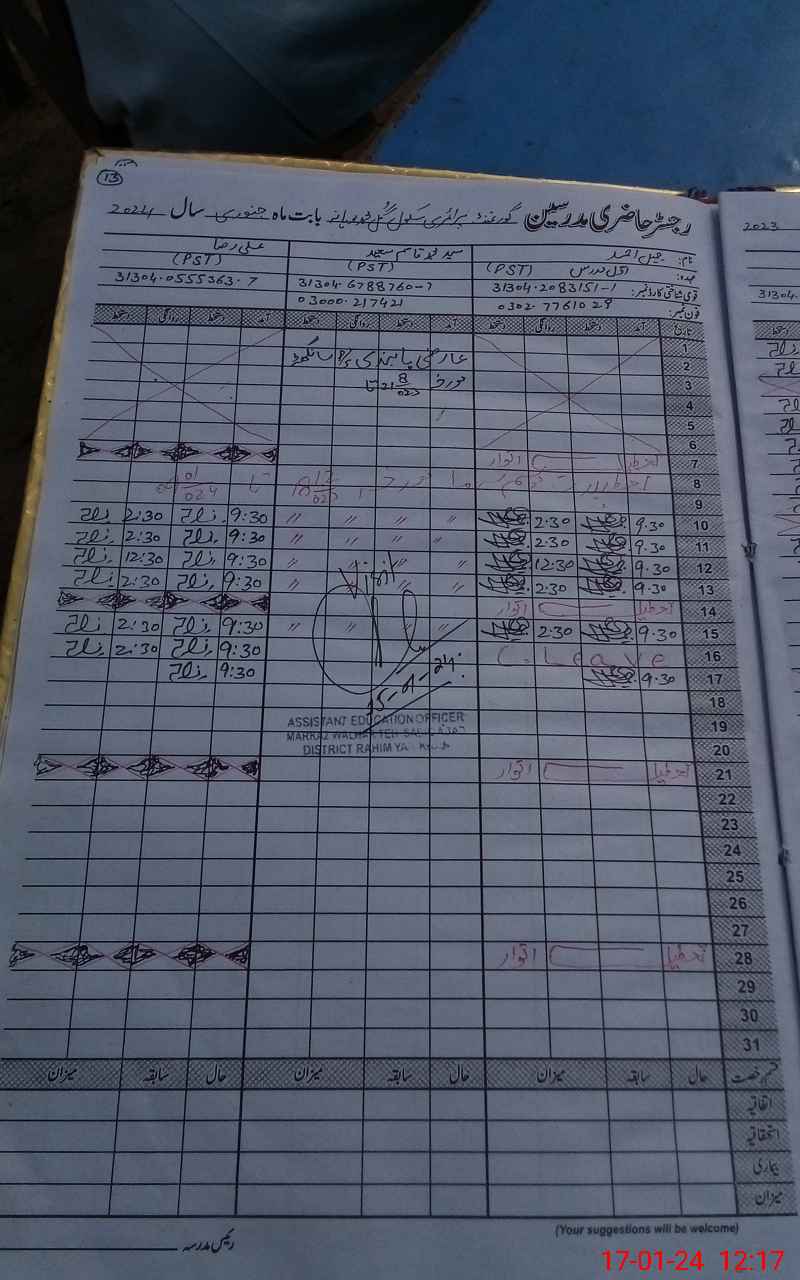 13
رجسٹر حاضری مدرسین گورنمنٹ پرائمری سکول گل محمد بابت ماہ جنوری سال 2024
2023
نام: جمیل احمد سید محمد قاسم سعید علی رضا
عہدہ: اول مدرس (PST) (PST) (PST)
قومی شناختی کارڈ نمبر: 31304-2083151-1 31304-6788760-7 31304-0555363-7
فون نمبر: 0302-7761029 03000-217421
31304
تاریخ آمد دستخط روانگی دستخط آمد دستخط روانگی دستخط آمد دستخط روانگی دستخط
1
2 عارضی
3 مورخہ 21/8/023 تا
4
5
6
7 تعطیل اتوار
8 تا
9
10 9.30 2.30 〃 〃 〃 〃 9:30 2:30
11 9.30 2.30 〃 〃 〃 〃 9:30 2:30
12 9.30 12:30 〃 〃 〃 9:30 12:30
13 9.30 2.30 〃 〃 〃 9:30 2:30
14 تعطیل اتوار
15 9.30 2.30 〃 〃 〃 〃 9:30 2:30
16 C. Leave 9:30 2:30
17 9.30 9:30
18
15-01-24
19
ASSISTANT EDUCATION OFFICER
MARKAZ WALHAR TEH
DISTRICT RAHIM YAR KHAN
20
21 تعطیل اتوار
22
23
24
25
26
27
28 تعطیل اتوار
29
30
31
قسم رخصت حال سابقہ میزان حال سابقہ میزان حال سابقہ میزان
اتفاقیہ
استحقاقیہ
بیماری
میزان
رئیس مدرسہ
(Your suggestions will be welcome)
17-01-24 12:17